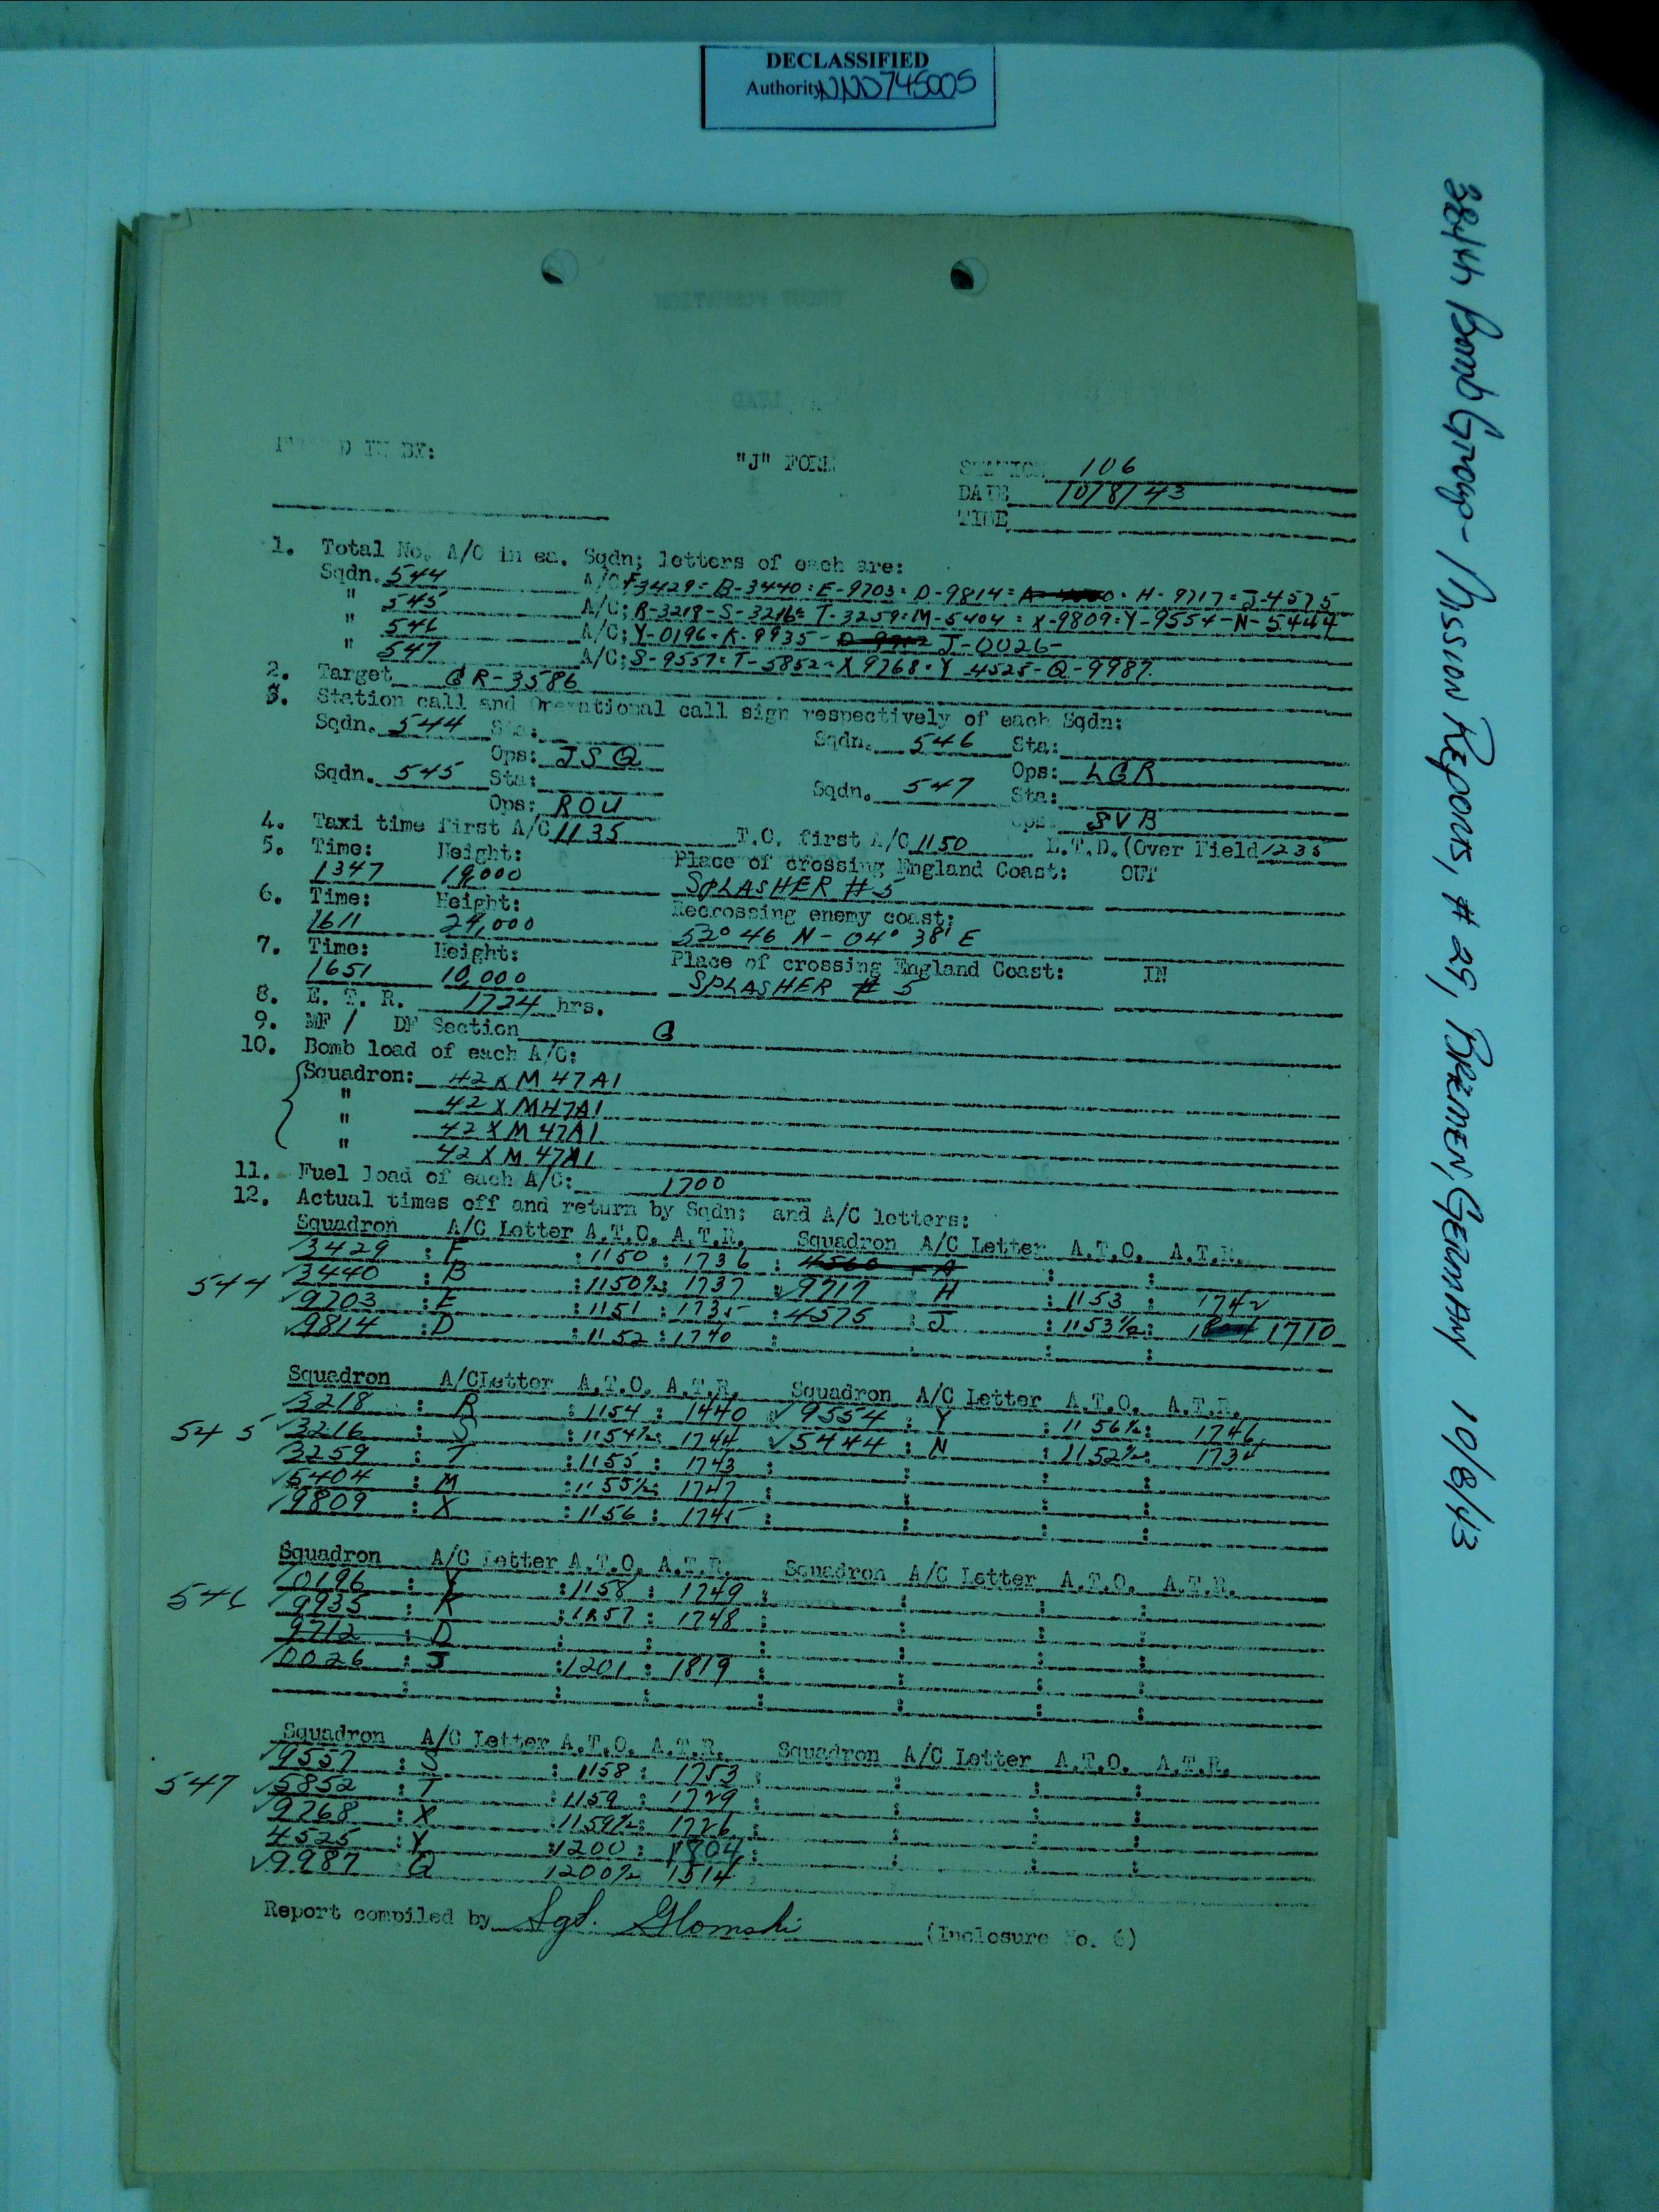 DECLASSIFIED
Authority NND745005
384th Bomb Group - Mission Reports, # 29, BREMEN, GERMANY 10/8/43
D TO BE:
"J" FORM
STATION 106
DATE 10/8/43
TIME
1. Total No. A/C in ea. Sqdn; letters of each are:
Sqdn. 544 A/C; F-3429- B-3440: E-9703: D-9814= H- 9717= J-4575
" 545 A/C; R-3218-S-3216= T-3259=M-5404 = X-9809=Y-9554-N-5444
" 546 A/C; Y-0196-K-9935- D 9712 J-0026-
" 547 A/C; S-9557=T-5852-X 9768-Y 4525-Q-9987.
2. Target GR-3586
3. Station call and Operational call sign respectively of each Sqdn:
Sqdn. 544 Sta: Sqdn. 546 Sta:
Ops: JSQ Ops: LGR
Sqdn. 545 Sta: Sqdn. 547 Sta:
Ops: ROU Ops: SVB
4. Taxi time first A/C 1135 T.O. first A/C 1150 E.T.D. (Over Field 1235
5. Time: Height: Place of crossing England Coast: OUT
1347 19,000 SPLASHER # 5
6. Time: Height: Recrossing enemy coast:
1611 24,000 52° 46 N - 04° 38' E
7. Time: Height: Place of crossing England Coast: IN
1651 10,000 SPLASHER # 5
8. E. T. R. 1724 hrs.
9. MF / DF Section G
10. Bomb load of each A/C:
Squadron: 42 X M 47A1
" 42 X M47A1
" 42 X M 47A1
" 42 X M 47A1
11. Fuel load of each A/C: 1700
12. Actual times off and return by Sqdn; and A/C letters:
Squadron A/C Letter A.T.O. A.T.R. Squadron A/C Letter A.T.O. A.T.R.
3429 : F : 1150 : 1736 : 4560 - A
544 3440 : B : 1150½: 1737 : 9717 H : 1153 : 1742
9703 : E : 1151 : 1735 : 4575 : J : 1153½: 1710
9814 : D : 1152 : 1740
Squadron A/CLetter A.T.O. A.T.R. Squadron A/C Letter A.T.O. A.T.R.
3218 : R : 1154 : 1440 9554 : Y : 1156½: 1746
545 3216 : S : 1154½: 1744 5444 : N : 1152½: 1734
3259 : T : 1155 : 1743
5404 : M : 1155½: 1747
9809 : X : 1156 : 1745
Squadron A/C Letter A.T.O. A.T.R. Squadron A/C Letter A.T.O. A.T.R.
0196 : Y : 1158 : 1749
546 9935 : K : 1157 : 1748
9712 : D
0026 : J : 1201 : 1819
Squadron A/C Letter A.T.O. A.T.R. Squadron A/C Letter A.T.O. A.T.R.
9557 : S : 1158 : 1753
547 5852 : T : 1159 : 1729
9768 : X : 1159½: 1726
4525 : Y : 1200 : 1804
9987 Q 1200½ 1514
Report compiled by Sgt. Glomski (Inclosure No. 6)